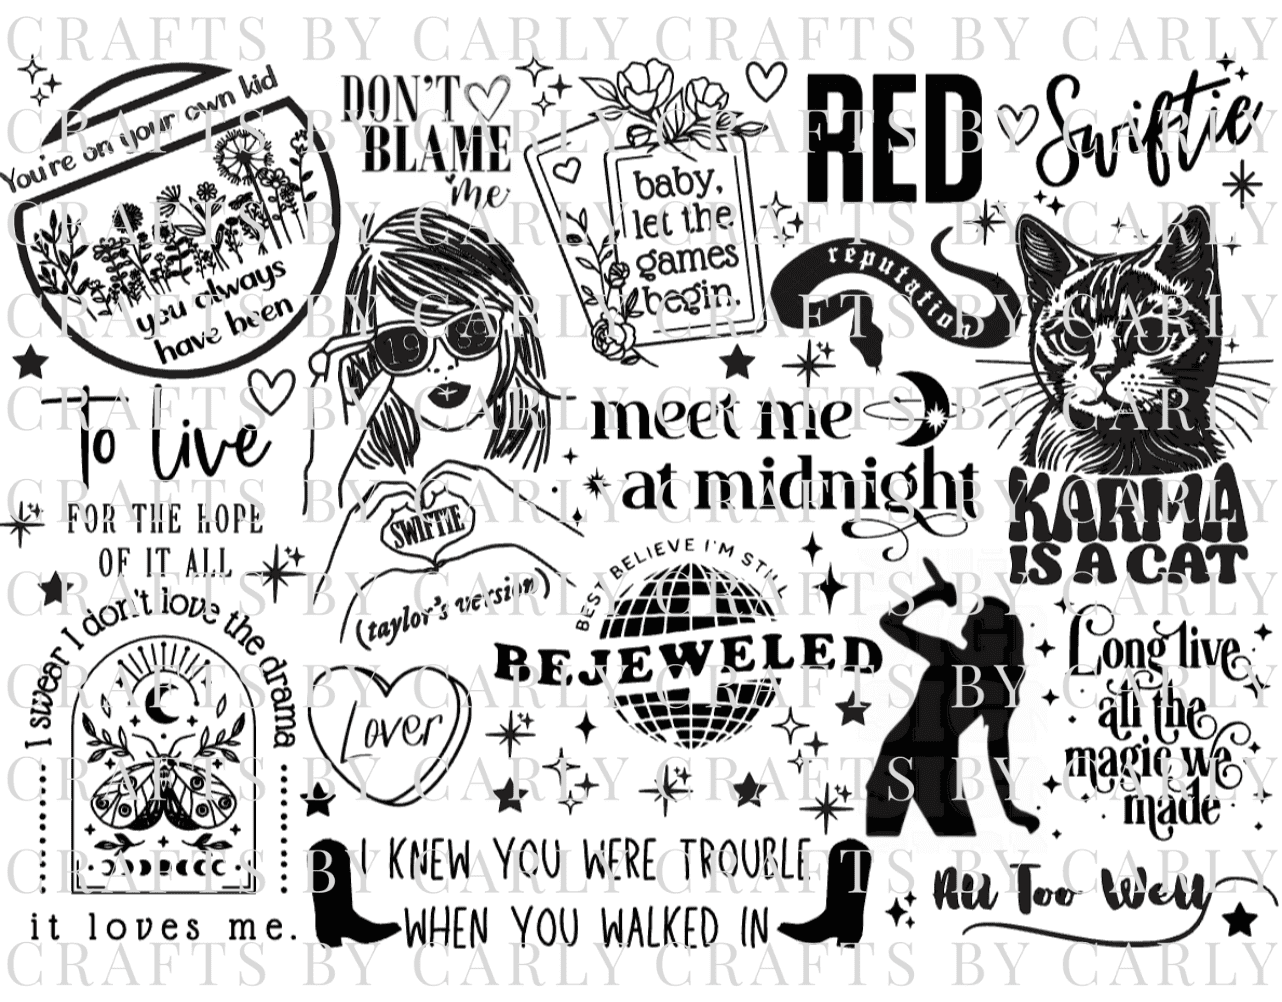 CRAFTS BY CARLY CRAFTS BY CARLY
You're on your own kid
you always
have been
DON'T
BLAME
me
baby,
let the
games
begin.
RED
Swiftie
reputation
1989
To live
FOR THE HOPE
OF IT ALL
meet me
at midnight
KARMA
IS A CAT
SWIFTIE
(taylor's version)
BEST BELIEVE I'M STILL
BEJEWELED
I swear I don't love the drama
it loves me.
Lover
Long live
all the
magic we
made
I KNEW YOU WERE TROUBLE
WHEN YOU WALKED IN
All Too Well